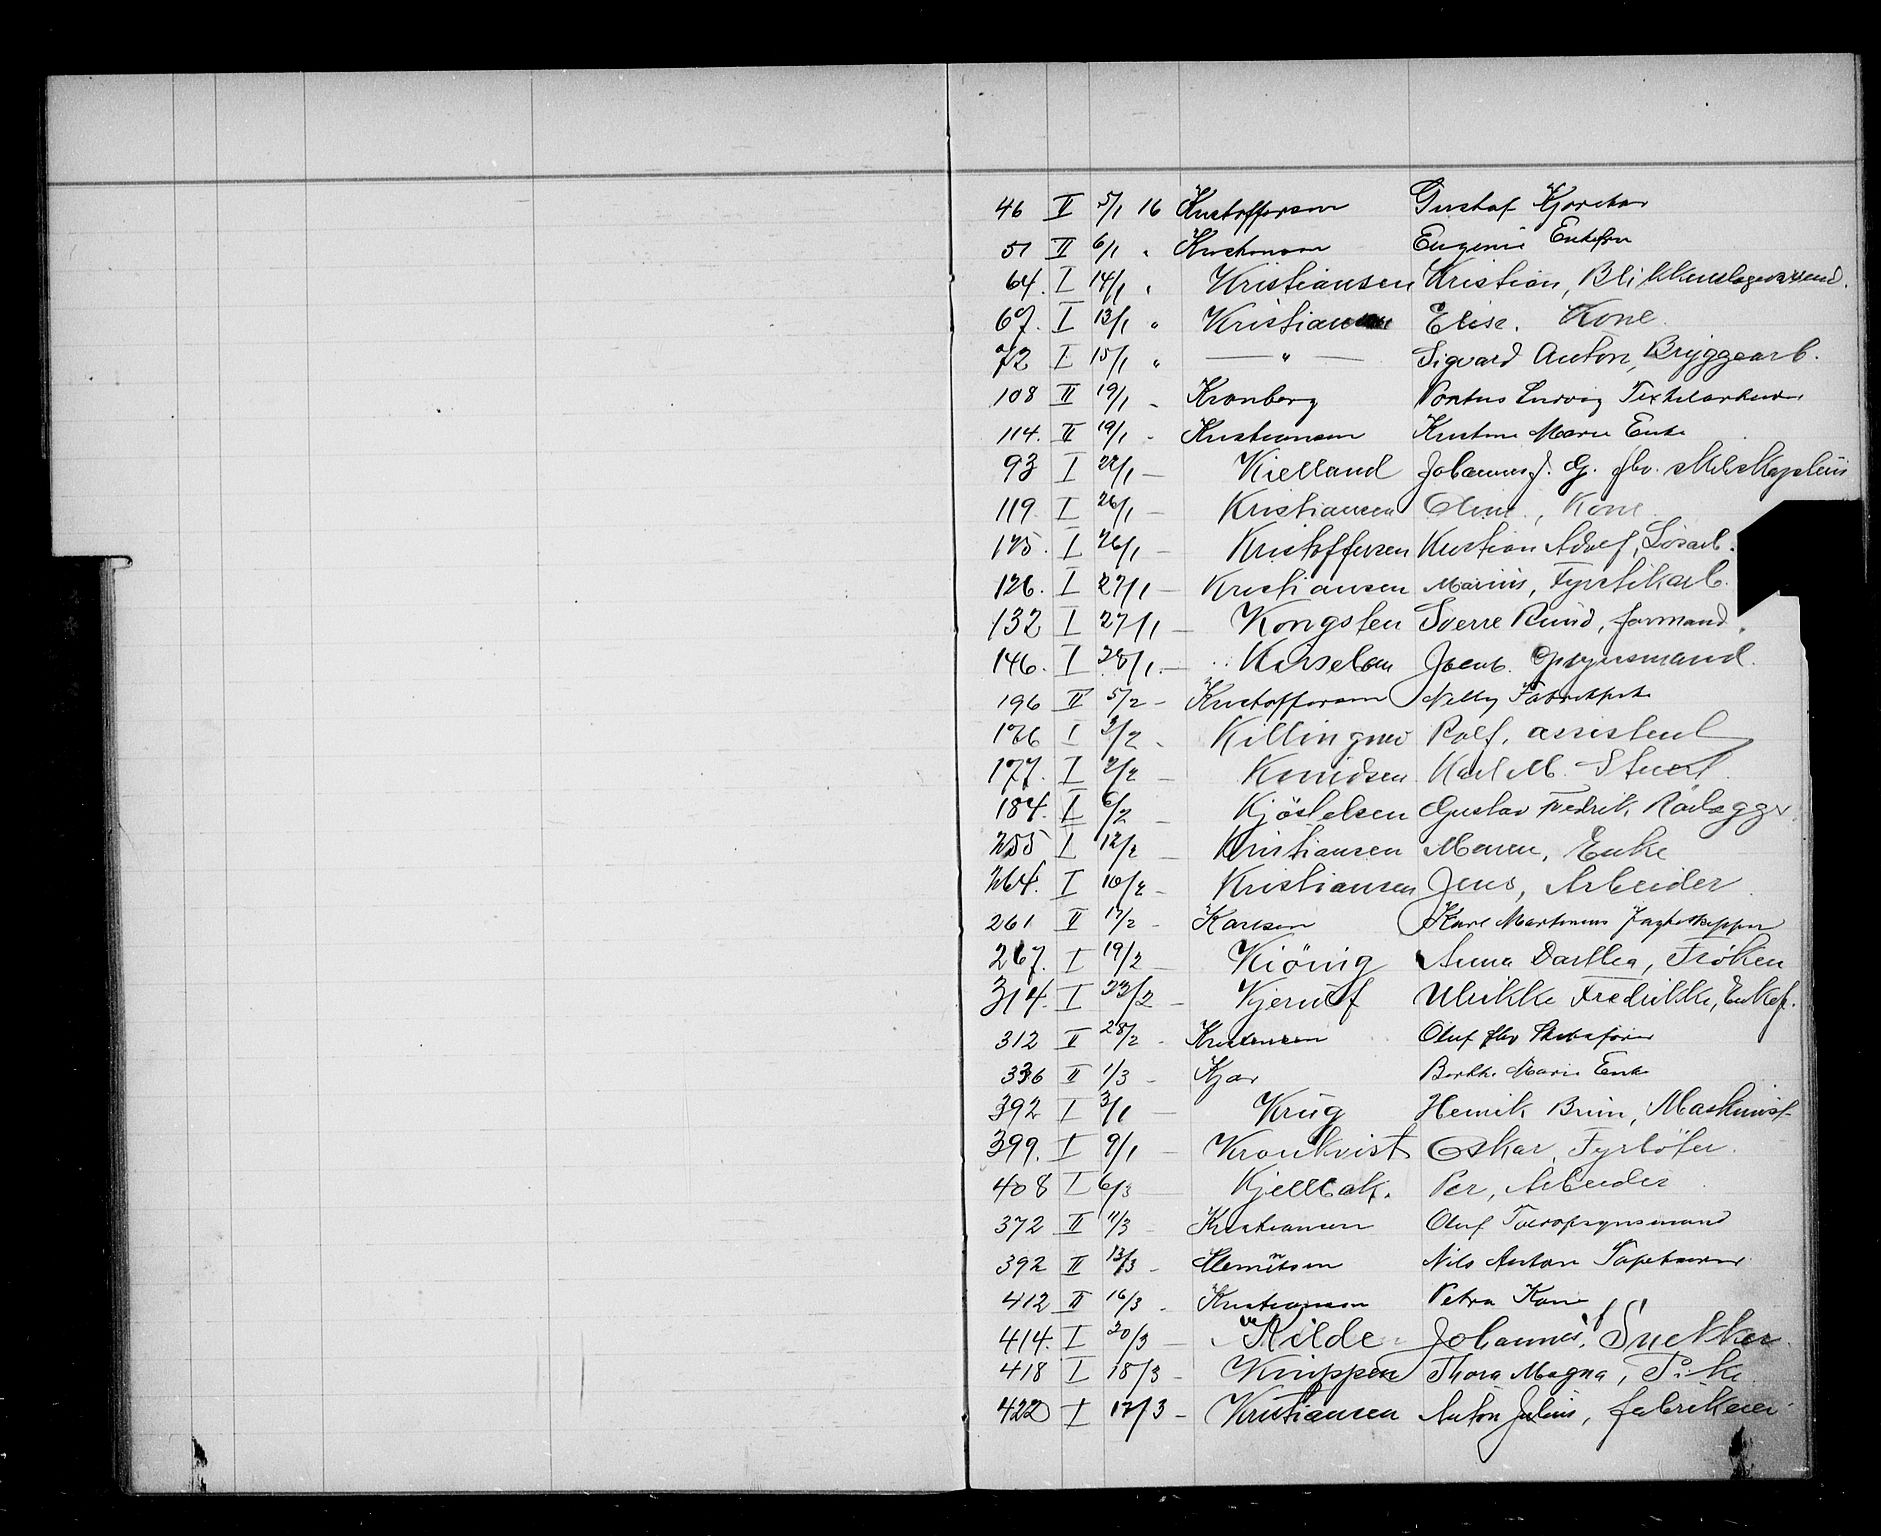 46 II 5/1 16 Kristoffersen Gustaf Kjøretør
51 II 6/1 " Kristensen Eugenie Enkefru
64. I 14/1 " Kristiansen Kristian, Blikkenslagersvend.
67. I 13/1 " Kristiansen Elise. Kone.
72 I 15/1 " — " — Sigvard Anton, Bryggearb.
108 II 19/1 - Kronberg Pontus Ludvig Textilarbeider
114. II 19/1 - Kristiansen Kristine Marie Enke
93 I 22/1 — Kielland Johannes J. G. fhv.
119 I 26/1 — Kristiansen Oline, Kone.
125. I 26/1 — Kristoffersen Kristian Adolf, Løsarb.
126. I 27/1 — Kristiansen Marius, Fyrstikarb.
132 I 27/1 — Kongsten Sverre Ruud, formand.
146. I 28/1. — Jacob. Opsynsmand.
196 II 5/2 - Kristoffersen Nelly Fabrikpike
176 I 2/2 - Killingmo Rolf, assistent
177. I 2/2 — Knudsen Karl M. Stuert.
184. I 6/2 — Kjöstelsen Gustav Fredrik, Rörlægger.
255 I 12/2 — Kristiansen Maren, Enke
264. I 10/2 - Kristiansen Jens, Arbeider.
261 II 17/2 - Karlsen Karl Martinius Jagteskipper
267. I 19/2 — Kiönig Anna Dorthea, Frøken
314. I 23/2 — Kjerulf Ulrikke Fredrikke, Enkef.
312 II 28/2 - Kristensen Oluf fhv Skibsfører
336 II 1/3 - Kjær Berthe Marie Enke
392 I 3/1 — Krug Henrik Bruun, Maskinist
399. I 9/1 — Kronkvist Oskar, Fyrböter.
408 I 6/3 — Kjellbak. Per, Arbeider
372 II 11/3 - Kristiansen Oluf Toldopsynsmand
392 II 13/3 - Klemetsen Nils Anton Tapetserer
412 II 16/3 - Kristiansen Petra Kone
414. I 20/3 — Kilde Johannes, Snekker.
418 I 18/3 - Knippen Thora Magna, Pike
422 I 17/3 - Kristiansen Anton Julius, fabrikeier